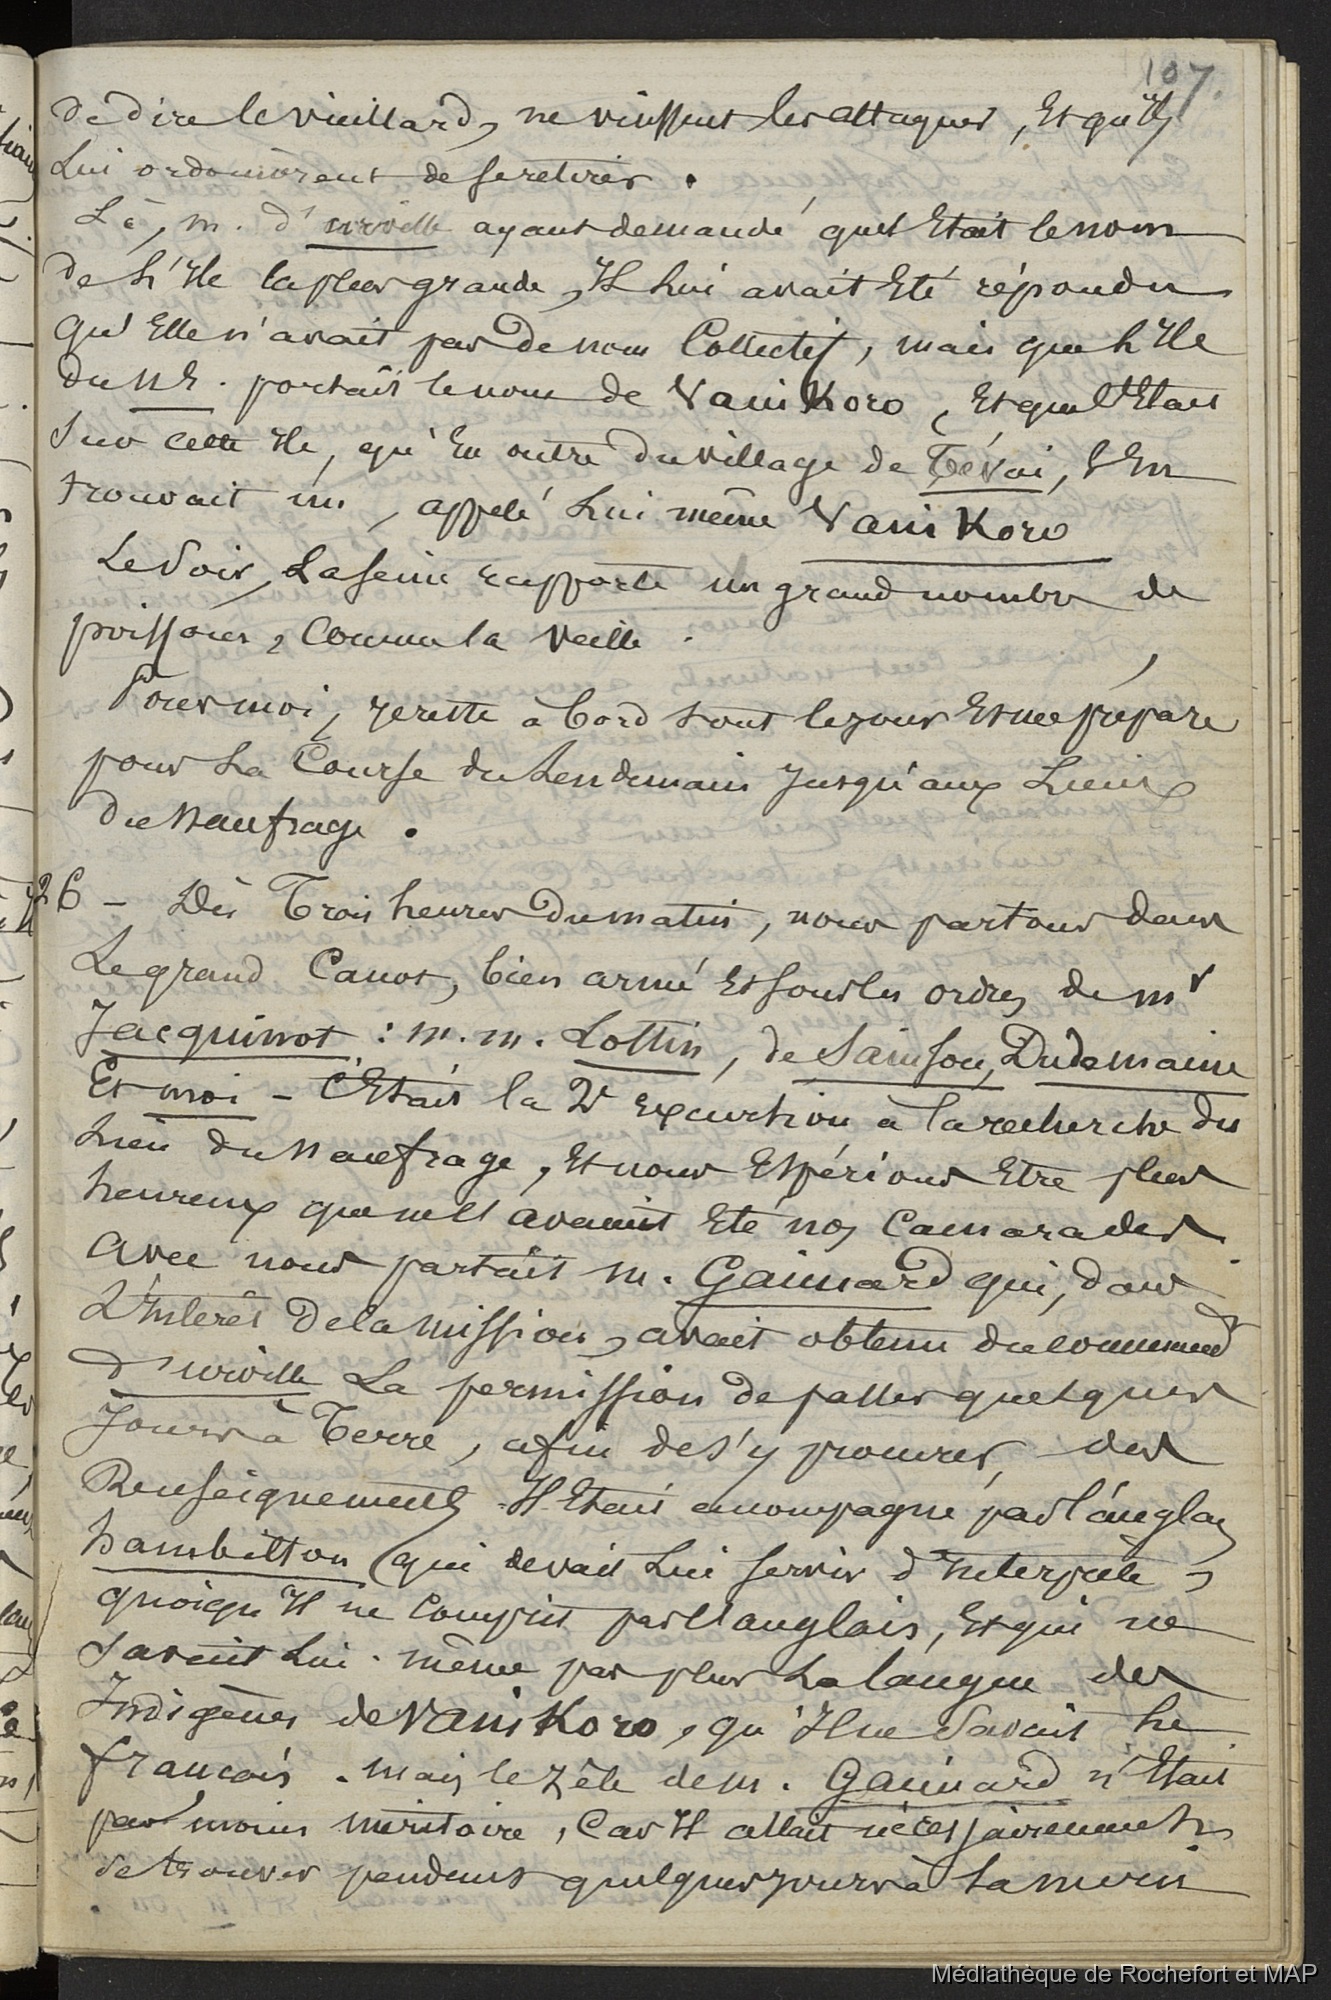 107.
de dire le vieillard, ne vinssent les attaquer, Et qu'ils
Lui ordonnèrent de se retirer.
Là, m. d'urville ayant demandé quel Etait le nom
de L'Ile la plus grande, Il Lui avait Eté répondu
qu'Elle n'avait pas de nom Collectif, mais que L'Ile
du NE. portait le nom de VaniKoro, Et que c'Etait
Sur cette Ile, qu'En outre du village de Tévai, s'En
trouvait un, appelé Lui même VaniKoro
Le Soir, La seine rapporte un grand nombre de
poissons, Comme la veille.
Pour moi, Je reste à bord tout le jour Et me prépare
pour La Course du Lendemain Jusqu'aux Lieux
du Naufrage.
26 - Dès Trois heures du matin, nous partons dans
Le grand Canot, bien armé Et sous les ordres de mr
Jacquinot : m. m. Lottin, de Sainson, Dudemaine
Et moi - C'Etait la 2e Excurtion à la recherche du
Lieu du Naufrage, Et nous Espérions Etre plus
heureux que ne l'avaient Eté nos Camarades.
Avec nous partait m. Gaimard qui, dans
L'Interêt de la mission, avait obtenu du command
d'urville La permission de passer quelques
Jours à Terre, afin de s'y procurer des
Renseignements. Il Etait accompagné par l'anglais
hambilton (qui devait Lui servir d'Interprète,
quoiqu'Il ne Comprit pas l'anglais, Et qui ne
Savait Lui-même pas plus La langue des
Indigènes de VaniKoro, qu'Il ne Savait Le
francais. mais le zèle de m. Gaimard n'Etait
pas moins méritoire, Car Il allait nécessairement
se trouver pendant quelques jours à La merci
Médiathèque de Rochefort et MAP